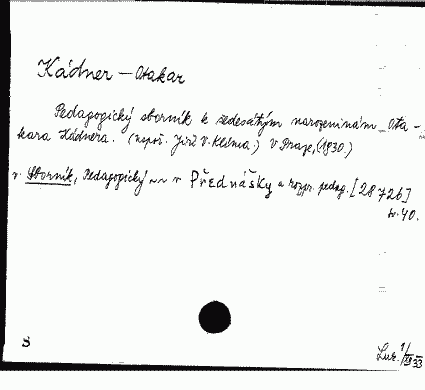 Kádner – Otakar
Pedagogický sborník k šedesátým narozeninám Ota-
kara Kádnera. (uspoř. Jiří V. Klíma.) V Praze, (1930.)
v. Sborník, Pedagogický ~~ v Přednášky a rozpr. pedag. [28726]
sv. 40.
S
Luk. 1/XII 33